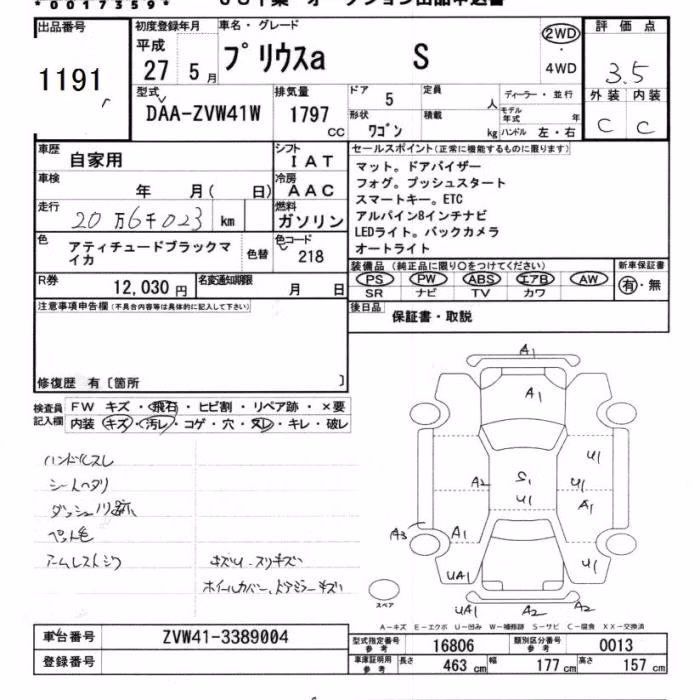 *0017359*
出品番号
1191
初度登録年月
平成
27 5月
車名・グレード
プリウスa S
2WD
・
4WD
評価点
3.5
外装 内装
C C
型式
DAA-ZVW41W
排気量
1797
CC
ドア
5
定員
人
ディーラー・並行
モデル年式 年
形状
ワゴン
積載
kg
ハンドル 左・右
車歴
自家用
シフト
IAT
車検
年 月( 日)
冷房
AAC
走行
20万6千023 km
燃料
ガソリン
色
アティチュードブラックマイカ
色替
色コード
218
R券
12,030円
名変通知期限
月 日
セールスポイント(正常に機能するものに限ります)
マット。ドアバイザー
フォグ。プッシュスタート
スマートキー。ETC
アルパイン8インチナビ
LEDライト。バックカメラ
オートライト
装備品(純正品に限り○をつけてください)
PS PW ABS エアB AW
SR ナビ TV カワ
新車保証書
有・無
後日品
保証書・取説
注意事項申告欄(不具合内容等は具体的に記入して下さい)
修復歴 有〔箇所 〕
検査員記入欄
FW キズ・飛石・ヒビ割・リペア跡・×要
内装 キズ・汚レ・コゲ・穴・スレ・キレ・破レ
ハンドルスレ
シートヘタリ
ダッシュノリ跡
ペット毛
アームレストシワ
キズU、スリキズ
ホイールカバー、ドアミラーキズ
A1
A1
A2
S1
U1
U1
U1
A1
A3
A1
U1
UA1
UA1
A2
A2
スペア
A−キズ E−エクボ U−凹み W−補修跡 S−サビ C−腐食 XX−交換済
車台番号
ZVW41-3389004
登録番号
型式指定番号
参考
16806
類別区分番号
参考
0013
車庫証明用
参考
長さ 463 cm
幅 177 cm
高さ 157 cm